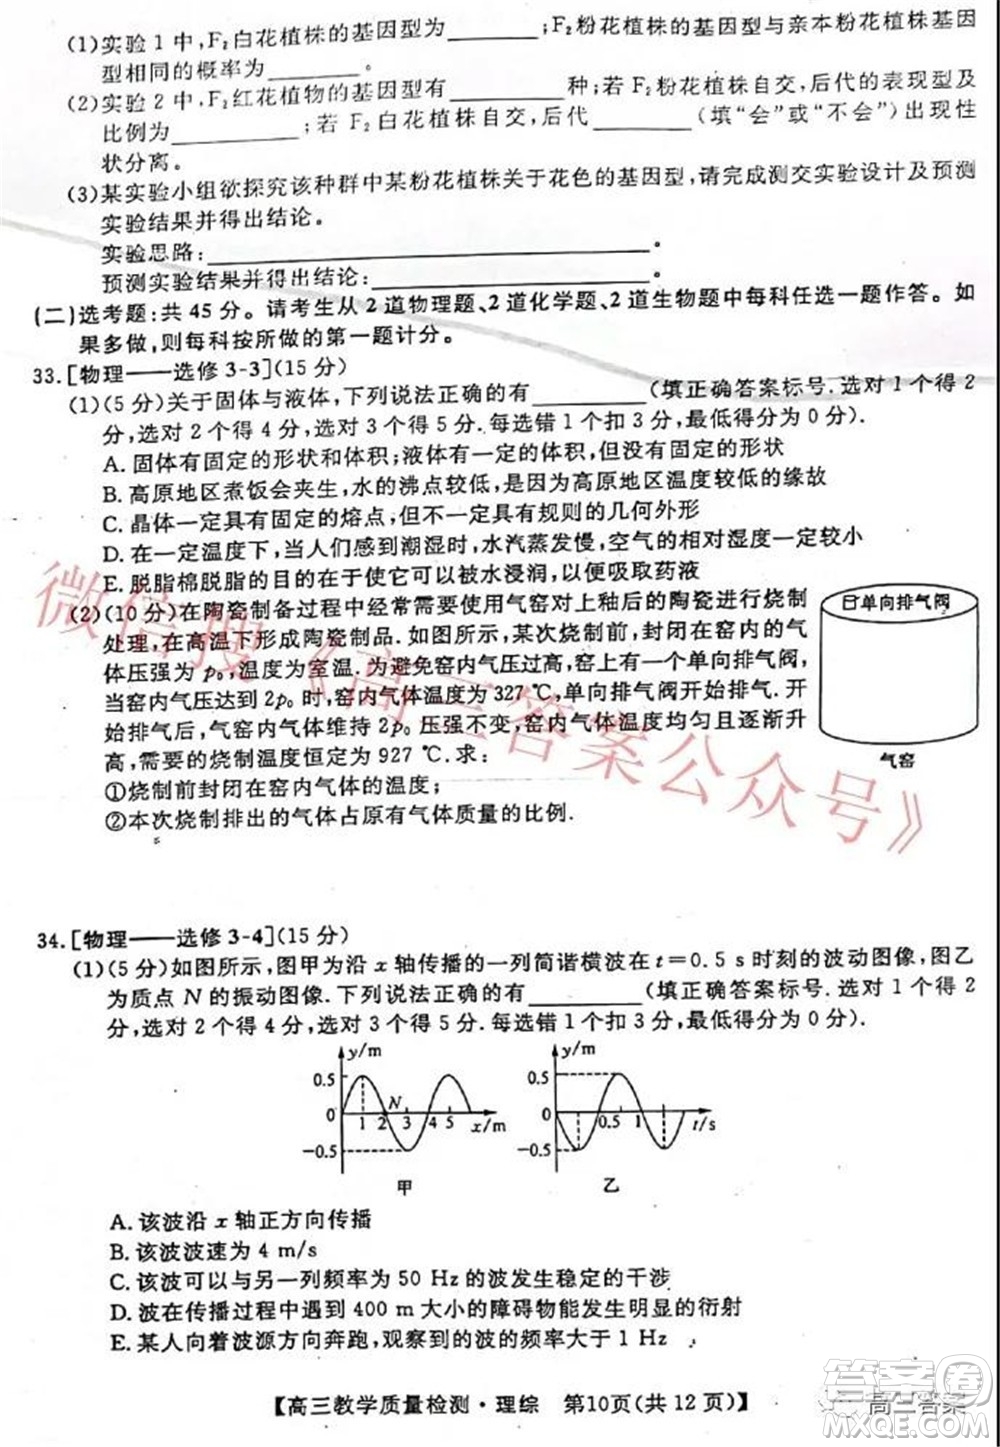 (1)实验 1 中,F₂白花植株的基因型为________;F₂粉花植株的基因型与亲本粉花植株基因
型相同的概率为________。
(2)实验 2 中,F₂红花植物的基因型有________种;若 F₂粉花植株自交,后代的表现型及
比例为________;若 F₂白花植株自交,后代________(填“会”或“不会”)发生性
状分离。
(3)某实验小组欲探究该种群中某粉花植株关于花色的基因型,请完成测交实验设计及预测
实验结果并得出结论。
实验思路:________________。
预测实验结果并得出结论:________________。
(二)选考题:共 45 分。请考生从 2 道物理题、2 道化学题、2 道生物题中每科任选一题作答。如
果多做,则每科按所做的第一题计分。
33.[物理——选修 3-3](15 分)
(1)(5 分)关于固体与液体,下列说法正确的有________(填正确答案标号.选对 1 个得 2
分,选对 2 个得 4 分,选对 3 个得 5 分.每选错 1 个扣 3 分,最低得分为 0 分).
A.固体有固定的形状和体积;液体有固定的体积,但没有固定的形状
B.高原地区煮饭会夹生,水的沸点较低,是因为高原地区温度较低的缘故
C.晶体一定具有固定的熔点;但不一定具有规则的几何外形
D.在一定温度下,当人们感到潮湿时,水汽蒸发慢,空气的相对湿度一定较小
E.脱脂棉脱脂的目的在于使它可以被水浸润,以便吸取药液
(2)(10 分)在陶瓷制备过程中经常需要使用气窑对上釉后的陶瓷进行烧制
处理,在高温下形成陶瓷制品.如图所示,某次烧制前,封闭在窑内的气
体压强为 p₀,温度为室温.为避免窑内气压过高,窑上有一个单向排气阀,
当窑内气压达到 2p₀时,窑内气体温度为 327 ℃,单向排气阀开始排气.开始
排气后,气窑内气体维持 2p₀压强不变,窑内气体温度均匀且逐渐升
高,需要的烧制温度恒定为 927 ℃.求:
①烧制前封闭在窑内气体的温度;
②本次烧制排出的气体占原有气体质量的比例.
单向排气阀
气窑
34.[物理——选修 3-4](15 分)
(1)(5 分)如图所示,图甲为沿 x 轴传播的一列简谐横波在 t=0.5 s 时刻的波动图像,图乙
为质点 N 的振动图像.下列说法正确的有________(填正确答案标号.选对 1 个得 2
分,选对 2 个得 4 分,选对 3 个得 5 分.每选错 1 个扣 3 分,最低得分为 0 分).
y/m
0.5
0
-0.5
1 2 3 4 5
N
x/m
甲
y/m
0.5
0
-0.5
0.5 1
t/s
乙
A.该波沿 x 轴正方向传播
B.该波波速为 4 m/s
C.该波可以与另一列频率为 50 Hz 的波发生稳定的干涉
D.波在传播过程中遇到 400 m 大小的障碍物能发生明显的衍射
E.某人向着波源方向奔跑,观察到的波的频率大于 1 Hz
【高三教学质量检测·理综 第10页(共 12 页)】
微信搜《高三答案公众号》
高三答案